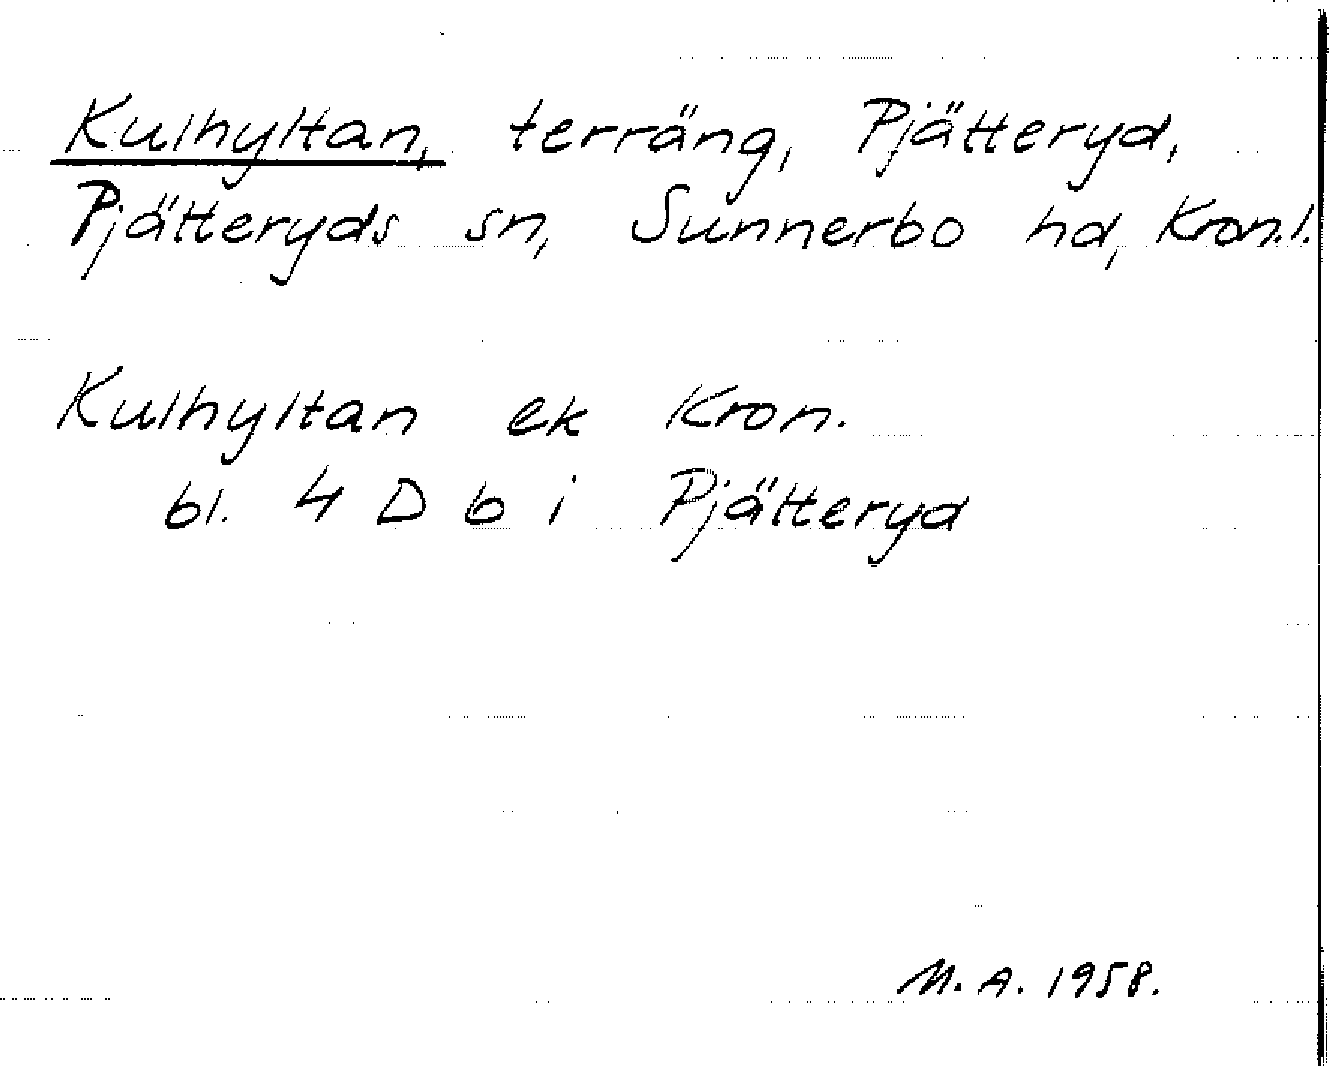 Kulhyltan, terräng, Pjätteryd,
Pjätteryds sn, Sunnerbo hd, Kron.l.
Kulhyltan ek Kron.
bl. 4 D b i Pjätteryd
M.A. 1958.